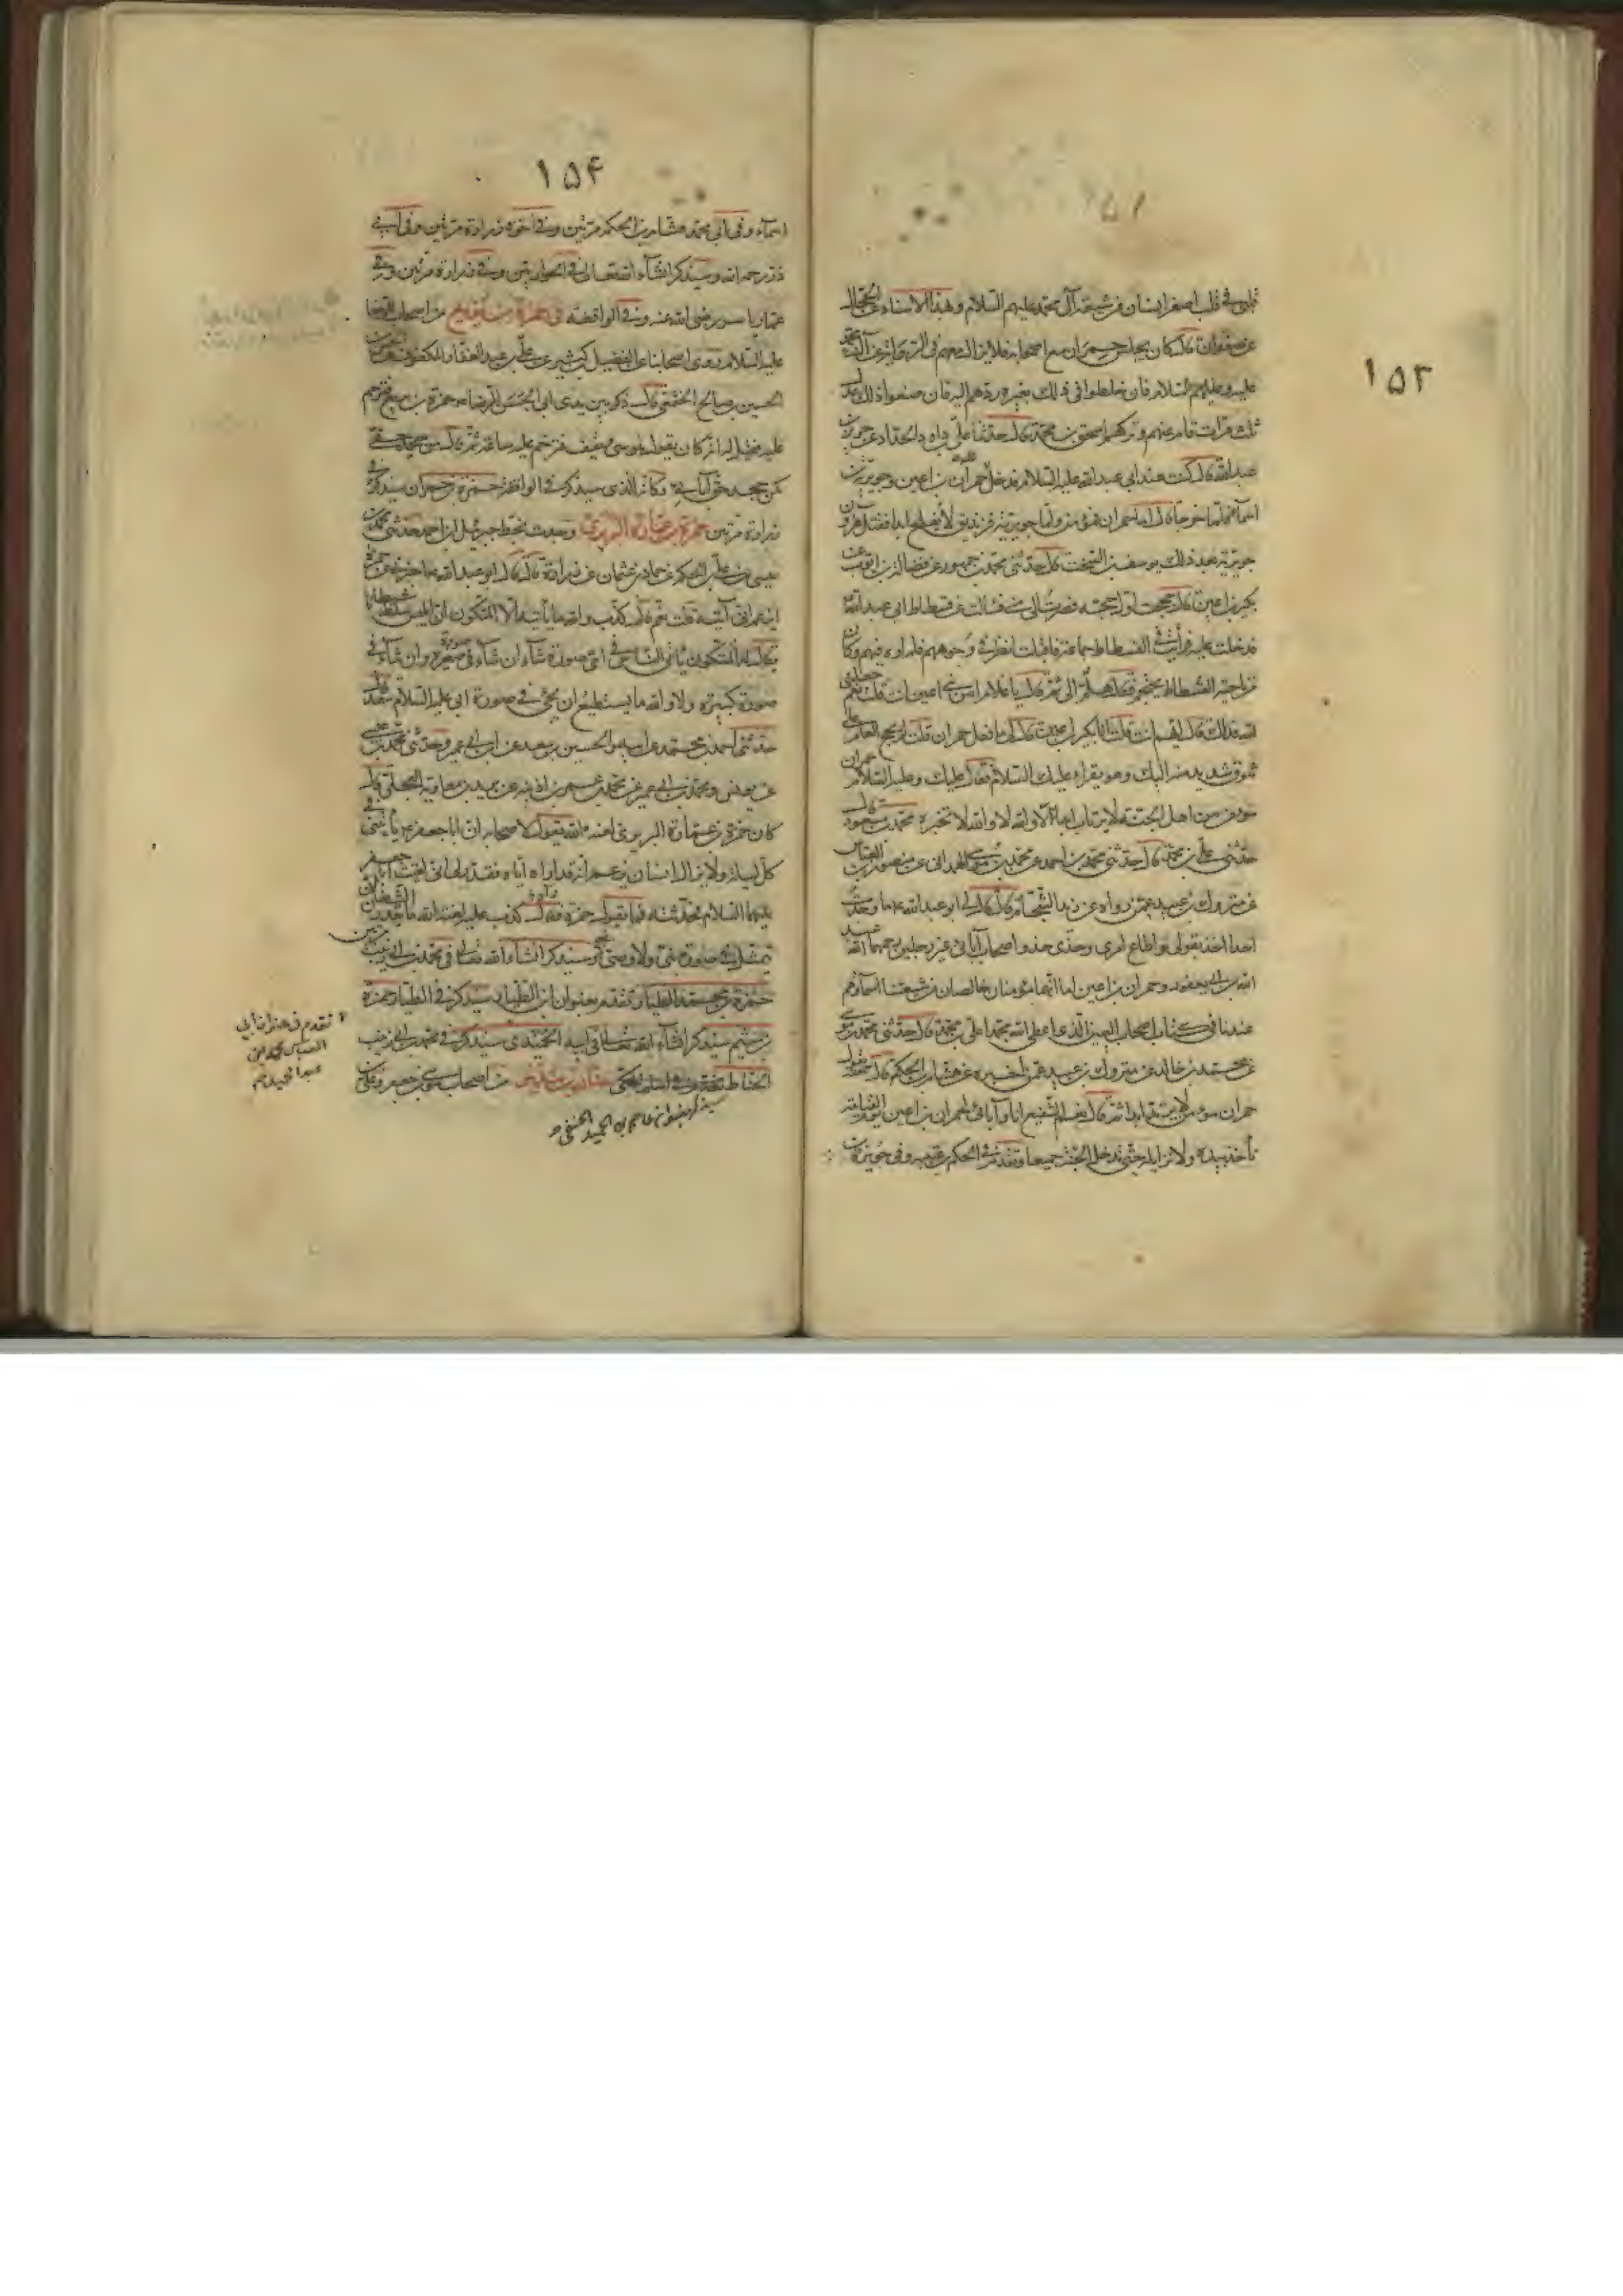 ١٥٣
قلبي في قلب اصغر انسان من شيعة آل محمد عليهم السلام وبهذا الاسناد عن الحجال
عن صفوان قال كان يجلس حمران مع اصحابه فلا يزال معهم في الرواية عن آل محمد
عليه وعليهم السلام فان خلطوا في ذلك بغيره ردهم اليه فان صنعوا ذلك عدل
ثلث مرات قام عنهم وتركهم اسحق بن محمد قال حدثنا علي بن داود الحداد عن حريز بن
عبدالله قال كنت عند ابي عبدالله عليه السلام فدخل عليه حمران بن اعين وجويرية بن
اسماء فلما خرجا قال اما حمران فمؤمن واما جويرية فزنديق لا يفلح ابدا فقتل هرون
جويرية بعد ذلك يوسف بن السخت قال حدثني محمد بن جمهور عن فضالة بن ايوب عن
بكير بن اعين قال حججت اول حجة فصرت الى منى فسالت عن فسطاط ابي عبدالله ع
فدخلت عليه فرأيت في الفسطاط جماعة فاقبلت انظر في وجوههم فلم اره فيهم وكان
في ناحية الفسطاط يحتجم فقال هلم الي ثم قال يا غلام امن بني اعين انت قلت نعم جعلني
الله فداك قال ايهم انت قلت انا بكير بن اعين قال لي ما فعل حمران قلت لم يحج العام على
شوق شديد منه اليك وهو يقرأ عليك السلام فقال عليك وعليه السلام حمران
مؤمن من اهل الجنة لا يرتاب ابدا لا والله لا والله لا تخبره محمد بن مسعود قال
حدثني علي بن محمد قال حدثني محمد بن احمد عن محمد بن موسى الهمداني عن منصور بن العباس
عن مروك بن عبيد عمن رواه عن زيد الشحام قال قال لي ابو عبدالله ع ما وجدت
احدا اخذ بقولي واطاع امري وحذى حذو اصحاب آبائي غير رجلين رحمهما الله عبد
الله بن ابي يعفور وحمران بن اعين اما انهما مؤمنان خالصان من شيعتنا اسماؤهم
عندنا في كتاب اصحاب اليمين الذي اعطى الله محمدا علي بن محمد قال حدثني محمد بن موسى
عن محمد بن خالد عن مروك بن عبيد عمن اخبره عن هشام بن الحكم قال سمعته يقول
حمران مؤمن لا يرتد ابدا ثم قال نعم الشفيع انا وآبائي لحمران بن اعين يوم القيامة
نأخذ بيده ولا نزايله حتى ندخل الجنة جميعا وتقدم في الحكم بن عتيبة وفي جويرية بن
١٥٤
اسماء وفي ابي محمد هشام بن الحكم مرتين وفي اخوه زرارة مرتين وفي ابي
ذر رحمه الله وسيذكر انشاء الله تعالى في الحواريين وفي زرارة مرتين وفي
عمار ياسر رضي الله عنه وفي الواقفة في حمزة بن بزيع من اصحاب الرضا
عليه السلام روى اصحابنا عن الفضل بن كثير عن علي بن عبد الغفار المكفوف عن الحسن بن
الحسين بن صالح الخثعمي قال ذكر بين يدي ابي الحسن الرضا ع حمزة بن بزيع فترحم
عليه فقيل له انه كان يقول بموسى ويقف فترحم عليه ساعة ثم قال من جحد حقي
كمن جحد حق آبائي وكانه الذي سيذكر في الواقفة حمزة بن حمران سيذكر في
زرارة مرتين حمزة بن عمارة البربري وجدت بخط جبرئيل بن احمد حدثني محمد بن
عيسى عن علي بن الحكم عن حماد بن عثمان عن زرارة قال قال ابو عبدالله ع اخبرني عن حمزة
ايزعم ان ابي آتيه قلت نعم قال كذب والله ما يأتيه الا المتكون ان ابليس سلط شيطانا
يقال له المتكون يأتي الناس في اي صورة شاء ان شاء في صورة صغيرة وان شاء في
صورة كبيرة ولا والله ما يستطيع ان يجئ في صورة ابي عليه السلام سعد قال
حدثني احمد بن محمد عن ابيه والحسين بن سعيد عن ابن ابي عمير وحدثني محمد بن عيسى
عن يونس ومحمد بن ابي عمير عن محمد بن عمر بن اذينه عن بريد بن معاوية العجلي قال
كان حمزة بن عمارة البربري لعنه الله يقول لاصحابه ان ابا جعفر ع يأتيني في
كل ليلة ولا يزال انسان يزعم انه قد اراه اياه فقدر لي اني لقيت ابا جعفر
عليهما السلام فحدثته بما يقول حمزة فقال كذب عليه لعنة الله ما يقدر الشيطان
يتمثل في صورة نبي ولا وصي نبي وسيذكر انشاء الله تعالى في محمد بن ابي زينب مرتين
حمزة بن محمد الطيار وتقدم بعنوان ابن الطيار سيذكر في الطيار حمزة
بن ميثم سيذكر انشاء الله تعالى في ابيه الحميدي سيذكر في محمد بن ابي زينب
الحناط
سيذكر بعنوان عاصم بن الحميد الحنفي
تقدم في هذا ان ابي
العباس محمد بن
عبد الحميد